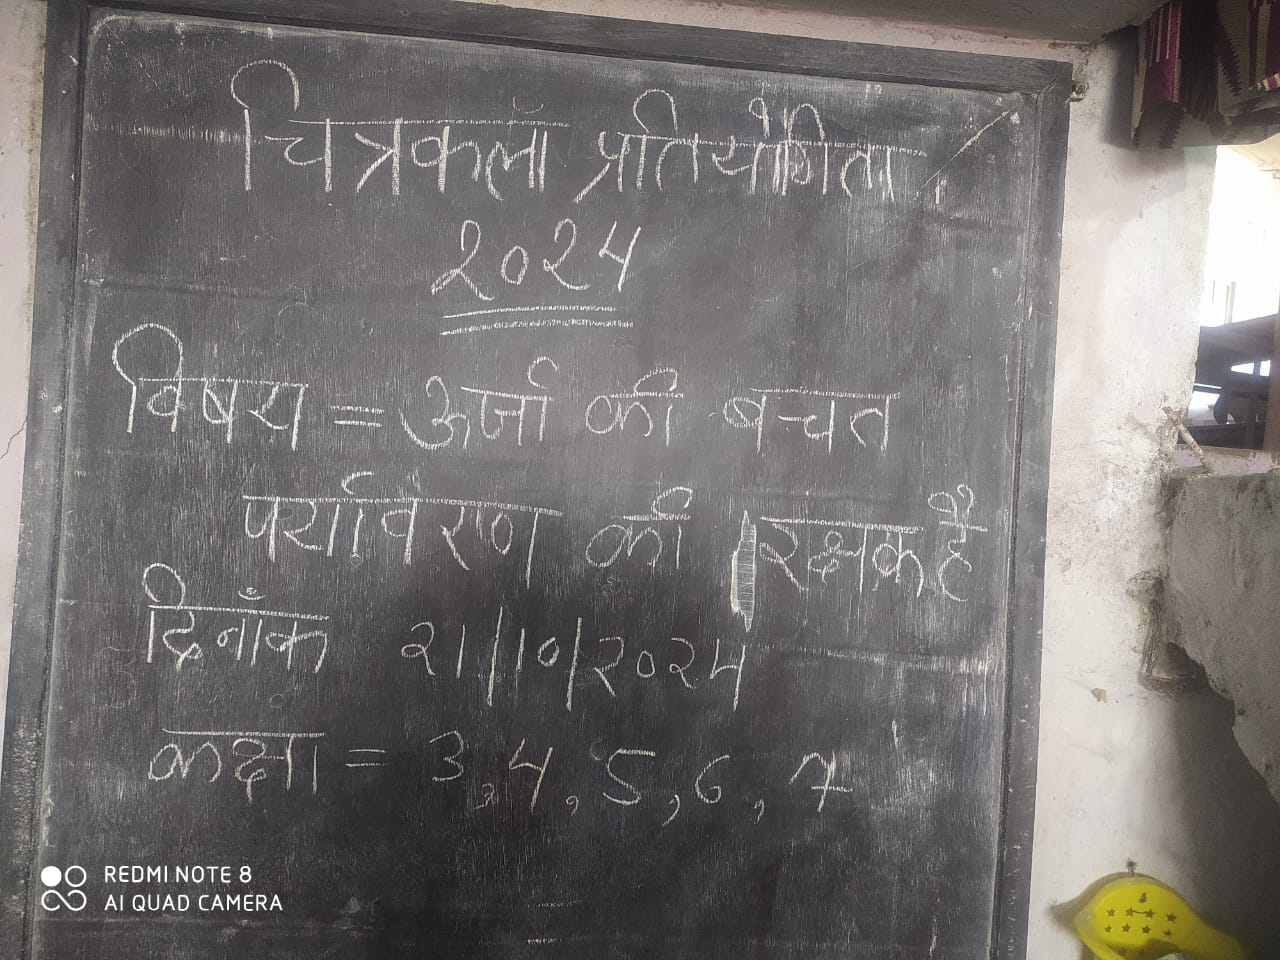 चित्रकला प्रतियोगिता
२०२४
विषय = ऊर्जा की बचत
पर्यावरण की रक्षक है
दिनाँक २१/१०/२०२४
कक्षा = 3, 4, 5, 6, 7
REDMI NOTE 8
AI QUAD CAMERA